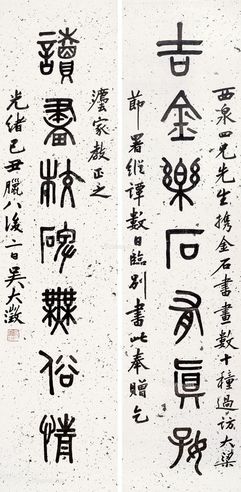 西泉四兄先生携金石書畫數十種過訪大梁
吉金樂石有真好
節署縱譚數日臨別書此奉贈乞
灋家教正之
讀畫校碑無俗情
光緒己丑臘八後二日吳大澂